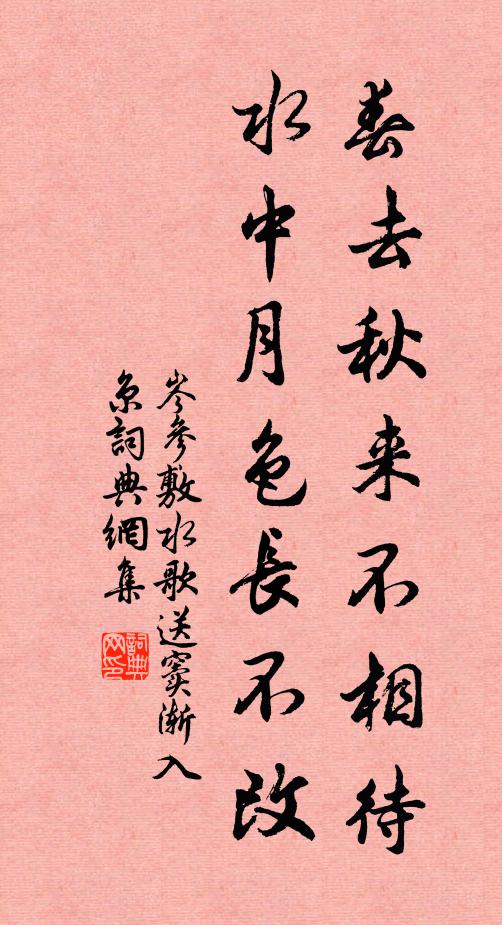 春去秋来不相待
水中月色長不改
岑參敷水歌送窦渐入
京詞典網集
詞典
网印